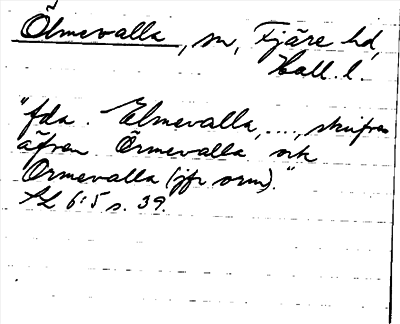 Ölmevalla, sn, Fjäre hd,
Hall. l.
"fda. Elmevalla, ...., skrifves
äfven Örmevalla och
Ormevalla (jfr orm)."
SL 6:5 s. 39.